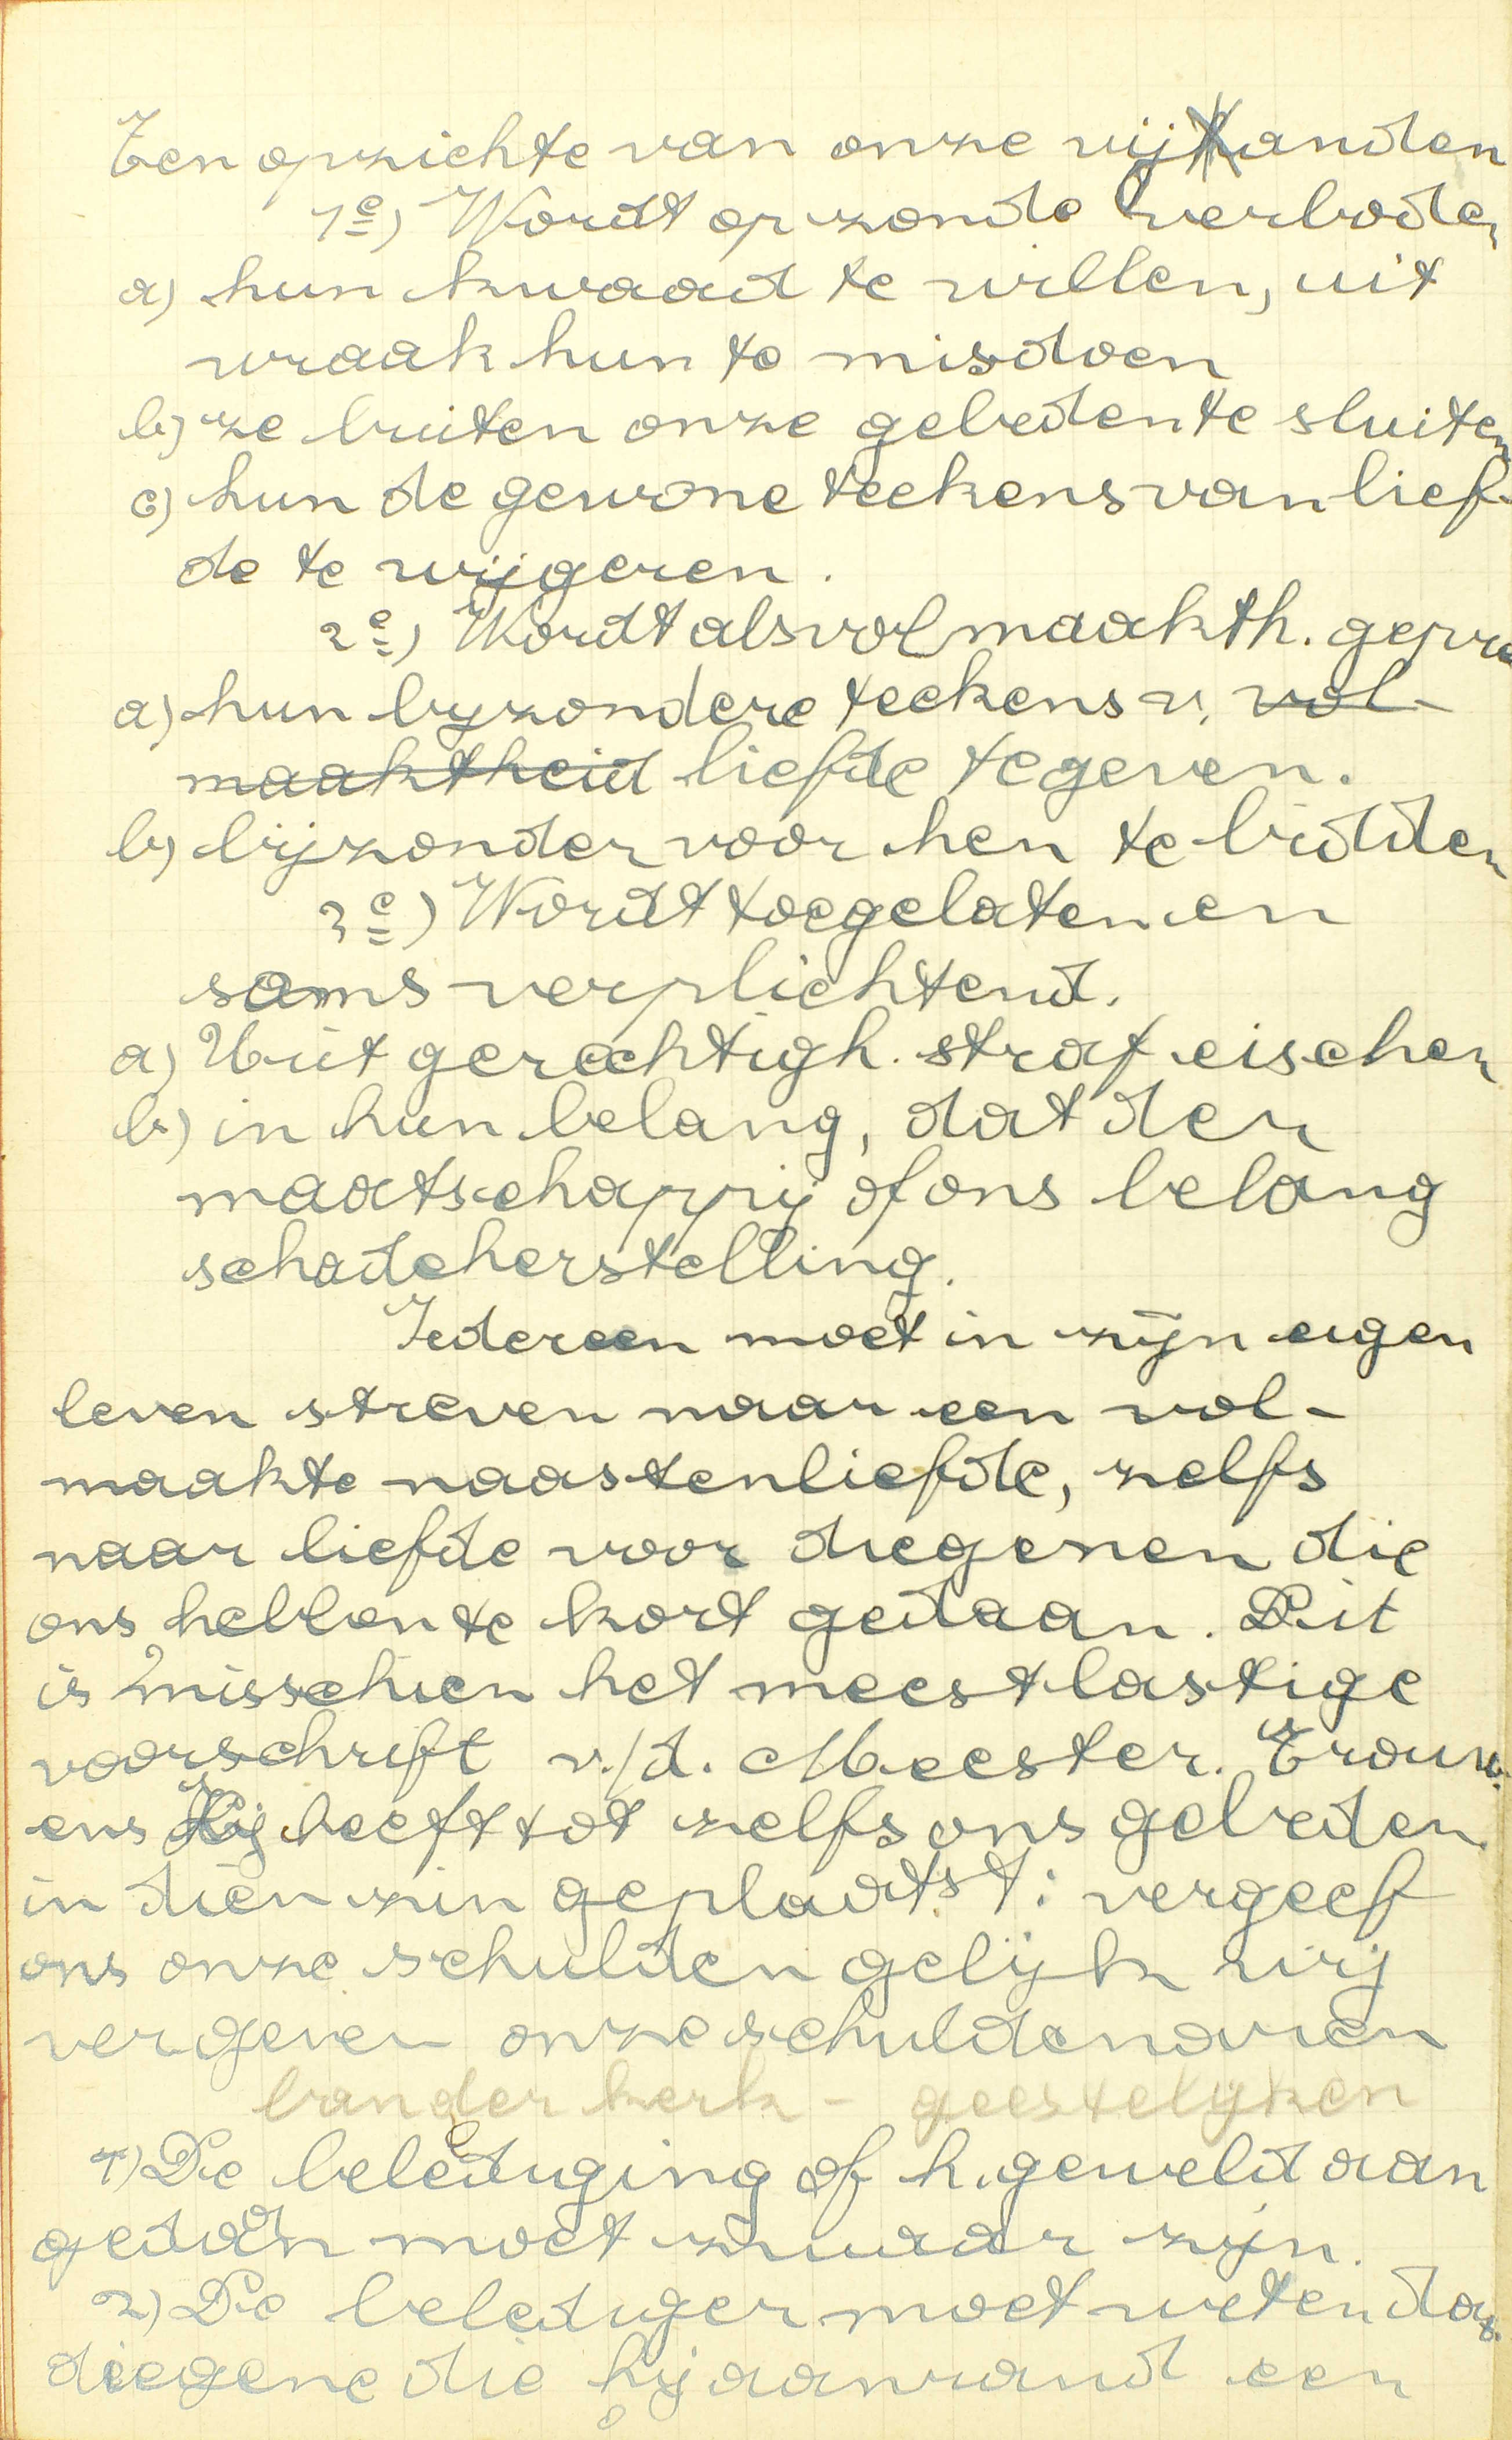 Ten opzichte van onze vijanden
1e) Wordt op zonde verboden
a) hun kwaad te willen, uit
wraak hun te misdoen
b) ze buiten onze gebeden te sluiten
c) hun de gewone teekens van lief-
de te wijgeren.
2e) Wordt als volmaakth. gepre
a) hun byzondere teekens v. vol-
maaktheid liefde te geven.
b) bijzonder voor hen te bidden
3e) Wordt toegelaten en
soms verplichtend.
a) Uit gerechtigh. straf eischen
b) in hun belang, dat der
maatschappij of ons belang
schadeherstelling.
Iedereen moet in zijn eigen
leven streven naar een vol-
maakte naastenliefde, zelfs
naar liefde voor diegenen die
ons hebben te kort gedaan. Dit
is misschien het meest lastige
voorschrift v./d. Meester. Trouw-
ens Hij heeft tot zelfs ons gebeden
in dien zin geplaatst: vergeef
ons onze schulden gelijk wij
vergeven onze schuldenaren
ban der kerk - geestelyken
1) De belediging of h. geweld aan
gedaan moet zwaar zijn.
2) De belediger moet weten dat
diegene die hij aanrand een